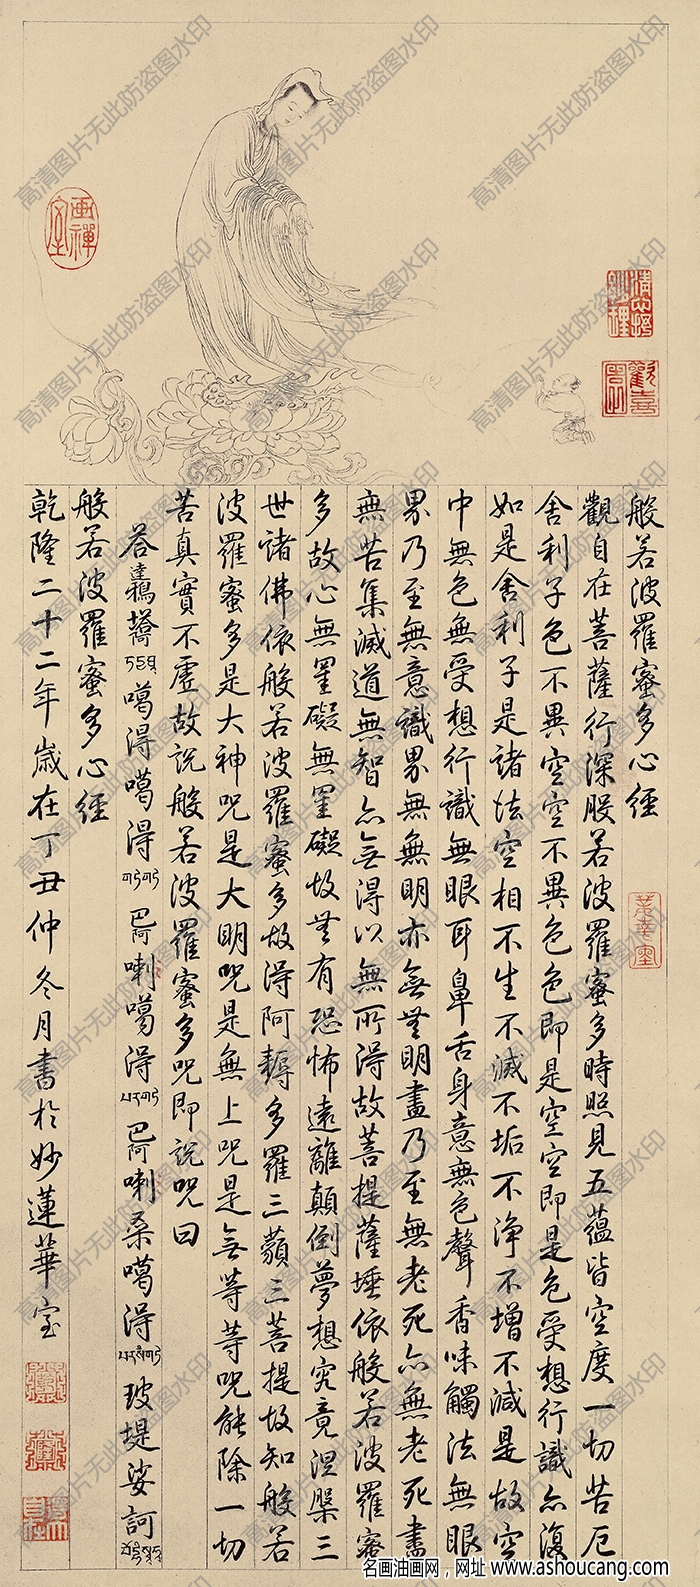 般若波羅蜜多心經
觀自在菩薩行深般若波羅蜜多時照見五蘊皆空度一切苦厄
舍利子色不異空空不異色色即是空空即是色受想行識亦復
如是舍利子是諸法空相不生不滅不垢不淨不增不減是故空
中無色無受想行識無眼耳鼻舌身意無色聲香味觸法無眼
界乃至無意識界無無明亦無無明盡乃至無老死亦無老死盡
無苦集滅道無智亦無得以無所得故菩提薩埵依般若波羅蜜
多故心無罣礙無罣礙故無有恐怖遠離顛倒夢想究竟涅槃三
世諸佛依般若波羅蜜多故得阿耨多羅三藐三菩提故知般若
波羅蜜多是大神咒是大明咒是無上咒是無等等咒能除一切
苦真實不虛故說般若波羅蜜多咒即說咒曰
噶得噶得 巴阿喇噶得 巴阿喇桑噶得 玻堤娑訶
般若波羅蜜多心經
乾隆二十二年歲在丁丑仲冬月書於妙蓮華室
画禪室
歡喜園
高清图片无此防盗图水印
名画油画网，网址 www.ashoucang.com